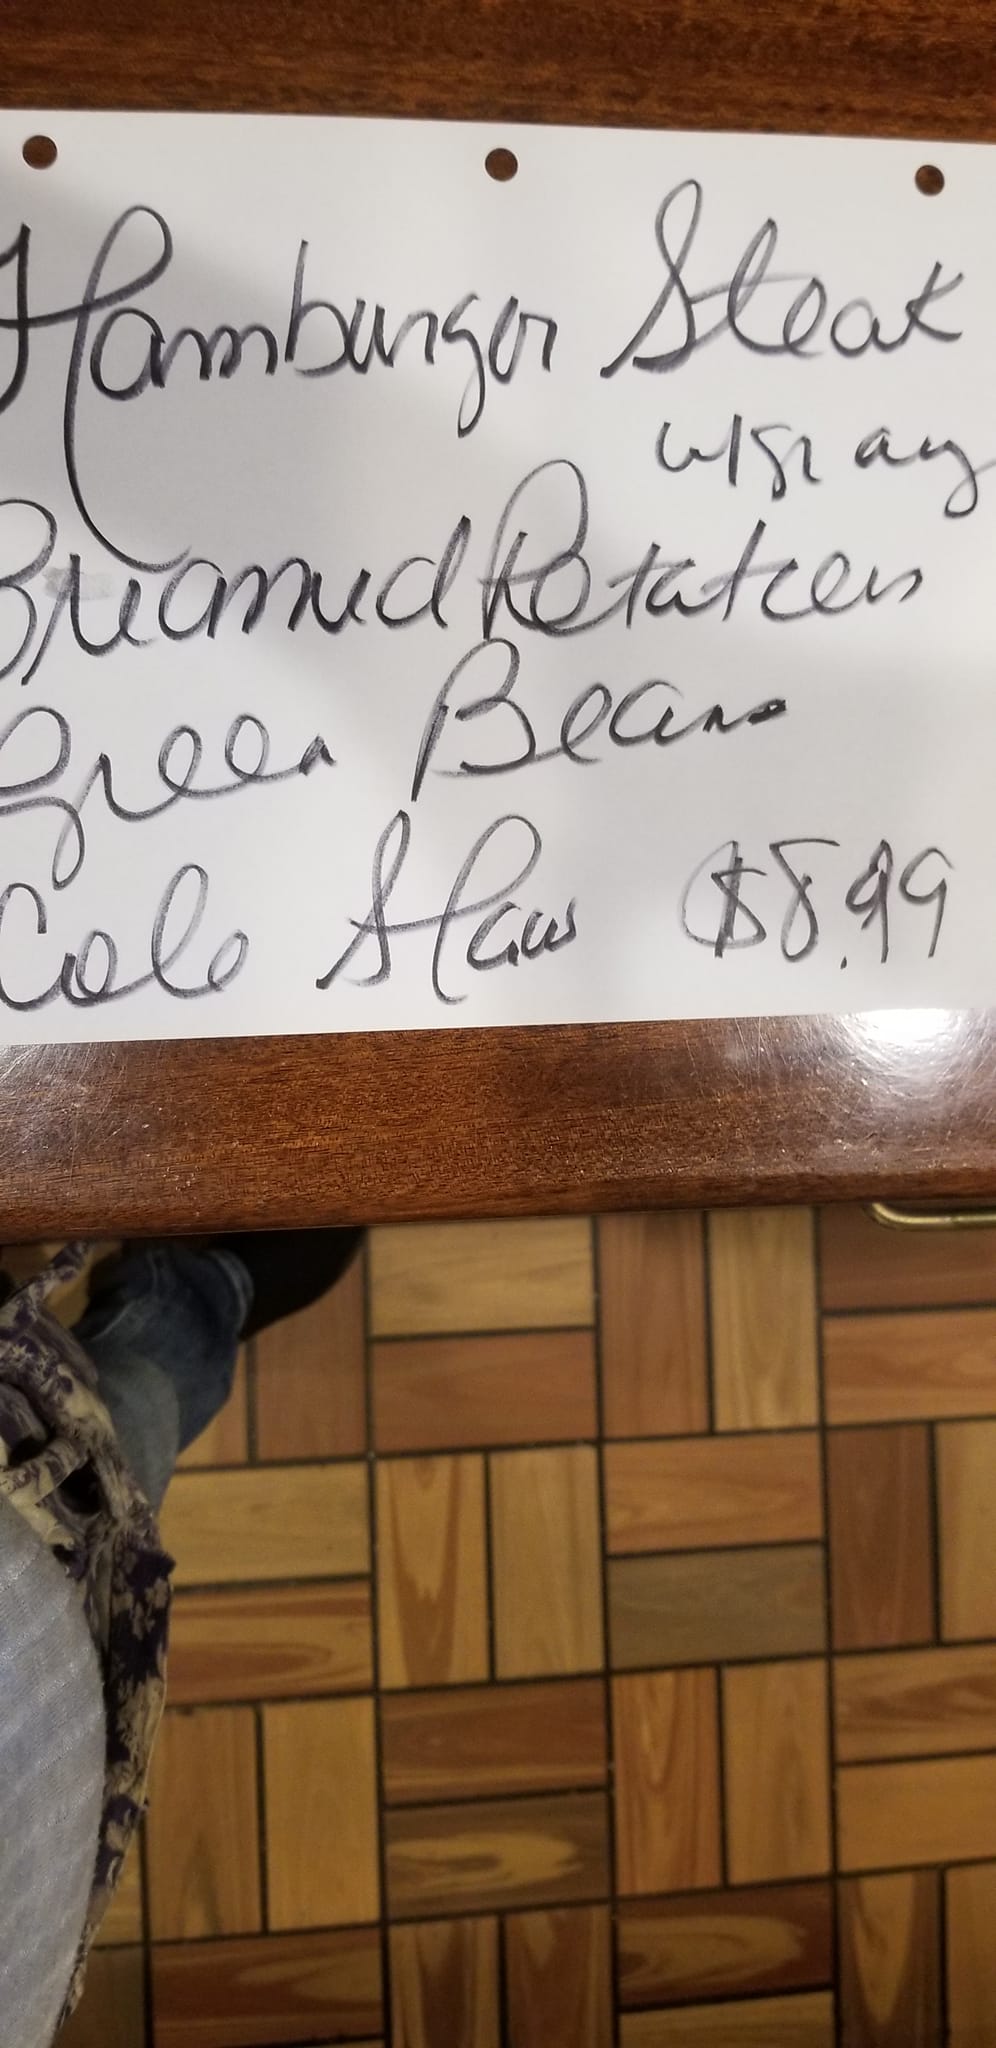 Hamburger Steak
w/gravy
Creamed Potatoes
Green Beans
Cole Slaw $8.99